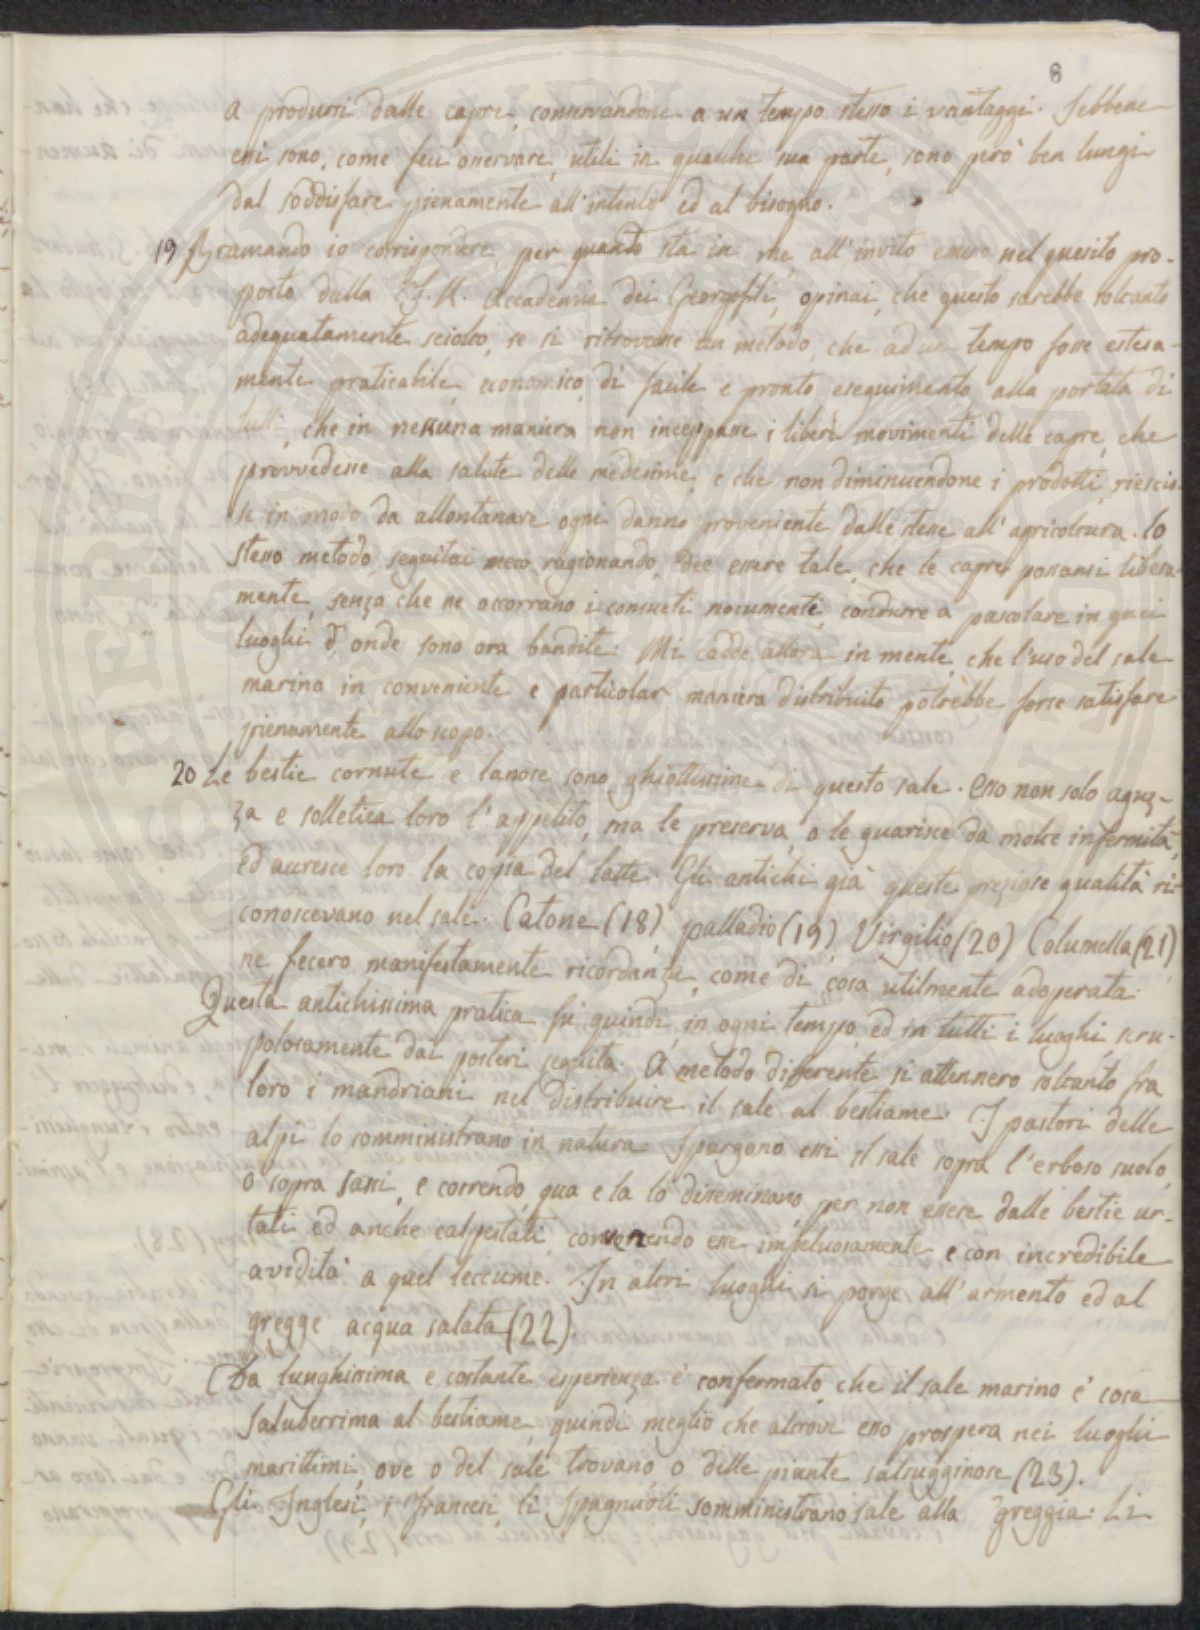 8
a produrri dalle capre, conservandone a un tempo stesso i vantaggi. Sebbene
essi sono, come feci osservare, utili in qualche sua parte, sono però ben lungi
dal soddisfare pienamente all'intento ed al bisogno.
19 Bramando io corrispondere, per quanto sta in me, all'invito emesso nel quesito pro-
posto dalla I. R. Accademia dei Georgofili, opinai, che questo sarebbe soltanto
adequatamente sciolto, se si ritrovasse un metodo, che ad un tempo fosse estesa-
mente praticabile, economico, di facile e pronto eseguimento, alla portata di
tutti, che in nessuna maniera non inceppasse i liberi movimenti delle capre, che
provvedesse alla salute delle medesime, e che non diminuendone i prodotti, riescis-
se in modo da allontanare ogni danno proveniente dalle stesse all'agricoltura. Lo
stesso metodo, seguitai meco ragionando, dee essere tale, che le capre possansi libera-
mente, senza che ne occorrano i consueti nocumenti, condurre a pascolare in quei
luoghi d'onde sono ora bandite. Mi cadde allora in mente, che l'uso del sale
marino in conveniente e particolar maniera distribuito potrebbe forse satisfare
pienamente allo scopo.
20 Le bestie cornute e lanose sono ghiottissime di questo sale. Esso non solo aguz-
za e solletica loro l'appetito, ma le preserva, o le guarisce da molte infermità,
ed accresce loro la copia del latte. Gli antichi già queste preziose qualità ri-
conoscevano nel sale. Catone (18), palladio (19), Virgilio (20) Columella (21)
ne fecero manifestamente ricordanza, come di cosa utilmente adoperata.
Questa antichissima pratica fu quindi, in ogni tempo, ed in tutti i luoghi, scru-
polosamente dai posteri seguita. A metodo differente si attennero soltanto fra
loro i mandriani nel distribuire il sale al bestiame. I pastori delle
alpi lo somministrano in natura. Spargono essi il sale sopra l'erboso suolo,
o sopra sassi, e correndo qua e la lo disseminano, per non essere dalle bestie ur-
tati ed anche calpestati, correndo esse impetuosamente e con incredibile
avidità a quel leccume. In altri luoghi si porge all'armento ed al
gregge acqua salata (22).
Da lunghissima e costante esperienza è confermato, che il sale marino è cosa
saluberrima al bestiame, quindi meglio che altrove esso prospera nei luoghi
marittimi, ove o del sale trovano o delle piante salsugginose (23).
Gli Inglesi, i Francesi, li Spagnuoli somministrano sale alla greggia. Li